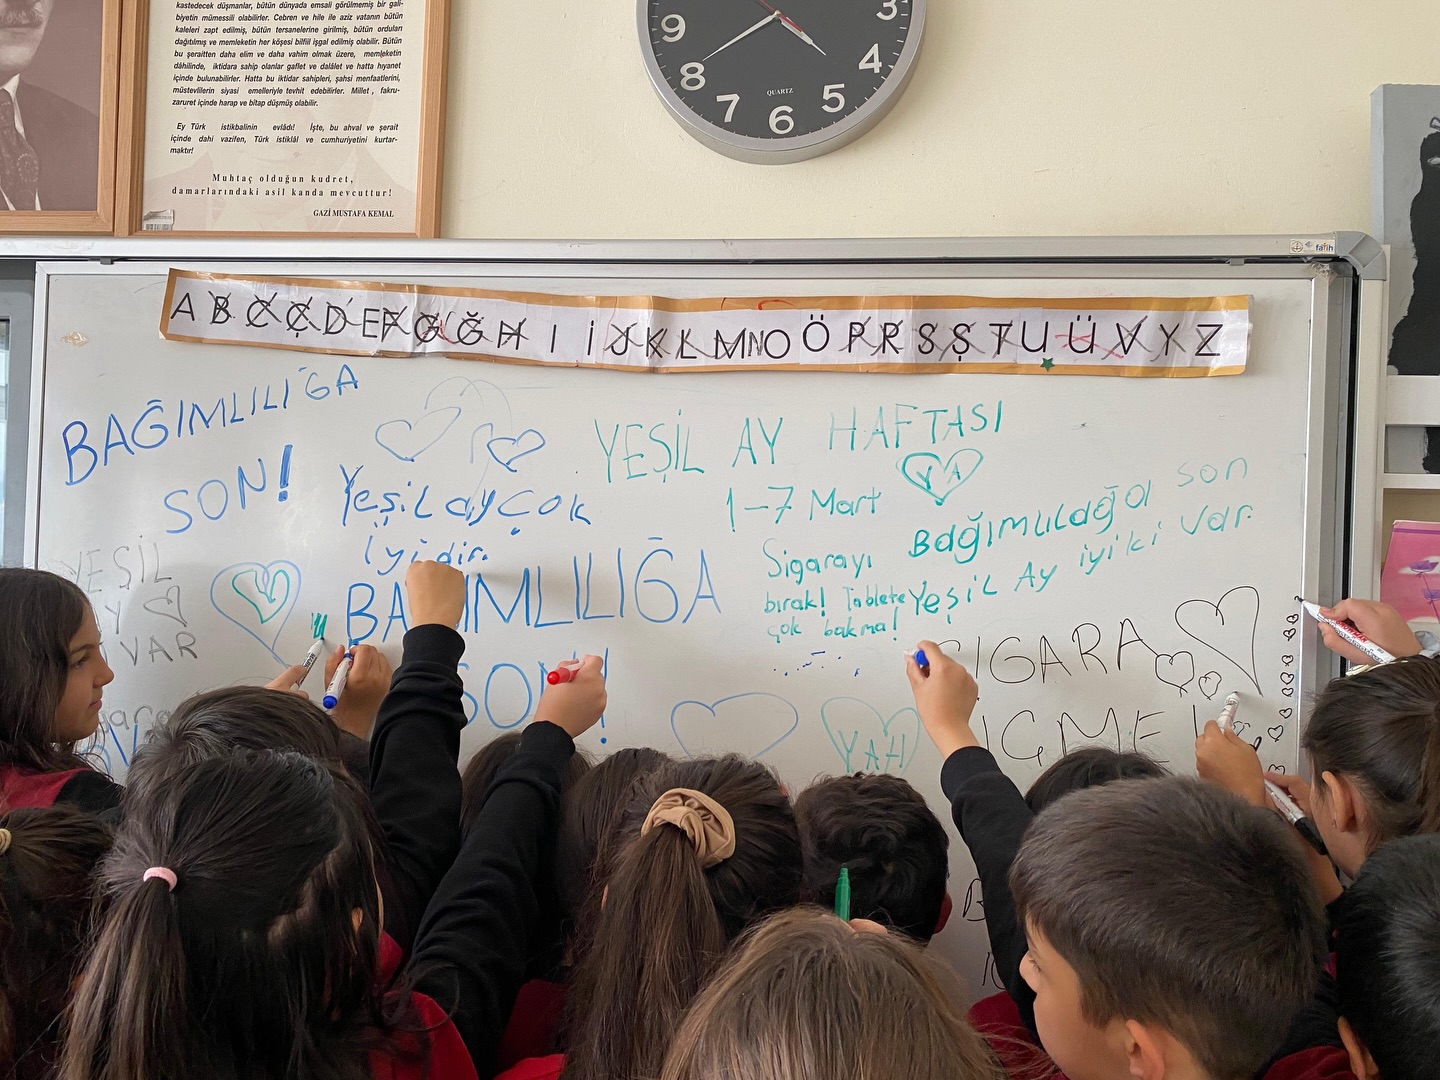 kastedecek düşmanlar, bütün dünyada emsali görülmemiş bir gali-
biyetin mümessili olabilirler. Cebren ve hile ile aziz vatanın bütün
kaleleri zapt edilmiş, bütün tersanelerine girilmiş, bütün orduları
dağıtılmış ve memleketin her köşesi bilfiil işgal edilmiş olabilir. Bütün
bu şeraitten daha elim ve daha vahim olmak üzere, memleketin
dâhilinde, iktidara sahip olanlar gaflet ve dalâlet ve hatta hıyanet
içinde bulunabilirler. Hatta bu iktidar sahipleri, şahsi menfaatlerini,
müstevlilerin siyasi emelleriyle tevhit edebilirler. Millet, fakru-
zaruret içinde harap ve bîtap düşmüş olabilir.
Ey Türk istikbalinin evlâdı! İşte, bu ahval ve şerait
içinde dahi vazifen, Türk istiklâl ve cumhuriyetini kurtar-
maktır!
Muhtaç olduğun kudret,
damarlarındaki asil kanda mevcuttur!
GAZİ MUSTAFA KEMAL
9 3
8 4
7 5
6
QUARTZ
fatih
A B C Ç D E F G Ğ H I İ J K L M N O Ö P R S Ş T U Ü V Y Z
BAĞIMLILIĞA
SON!
Yeşil ay çok
iyidir.
YEŞİL AY HAFTASI
1-7 Mart
Y A
Bağımlılağa son
Yeşil Ay iyiki var.
Sigarayı
bırak! Tablete
çok bakma!
YEŞİL
Y
VAR
BA IMLILIĞA
SON!
SIGARA
YAH